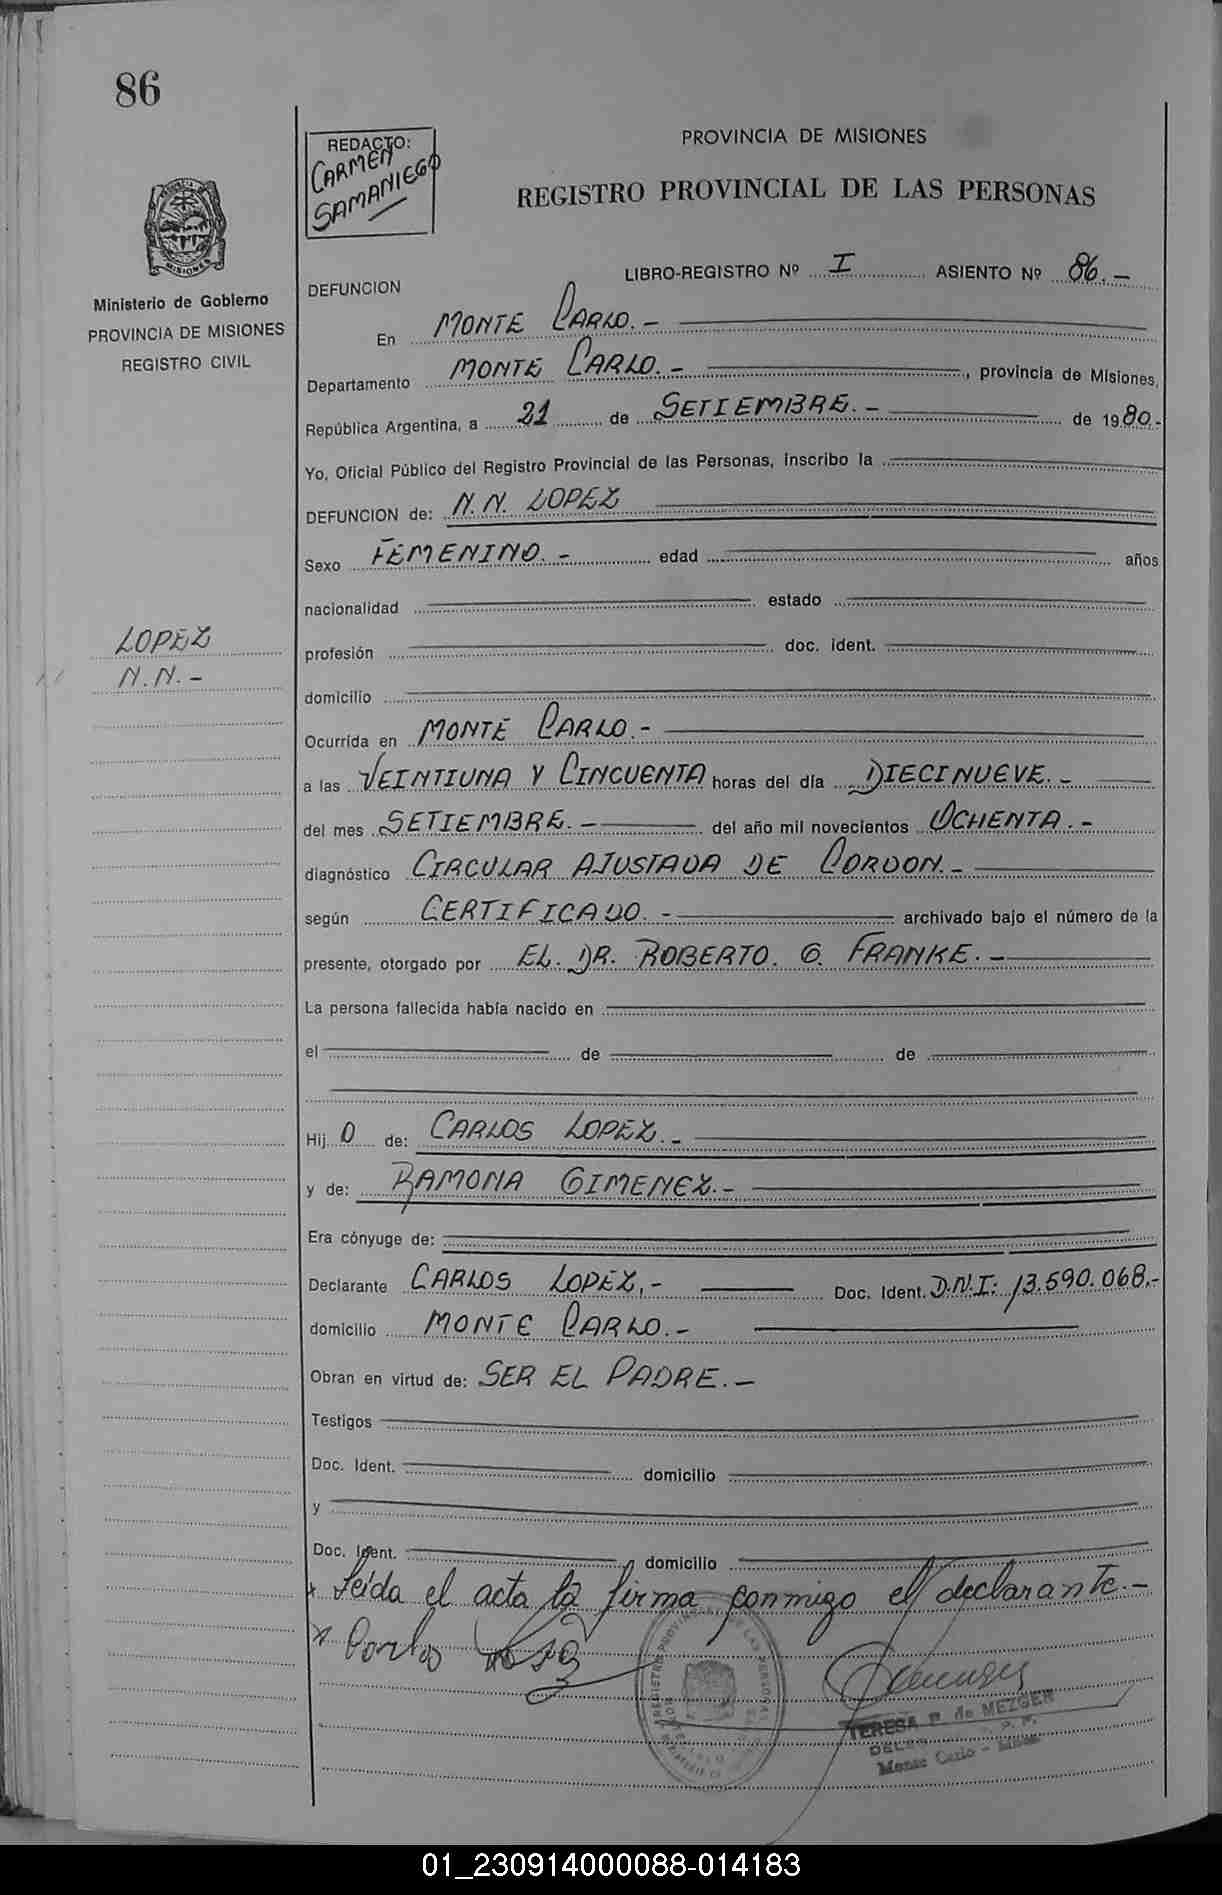 86
REDACTO:
CARMEN
SAMANIEGO
PROVINCIA DE MISIONES
REGISTRO PROVINCIAL DE LAS PERSONAS
MISIONES
Ministerio de Gobierno
PROVINCIA DE MISIONES
REGISTRO CIVIL
LIBRO-REGISTRO Nº I ASIENTO Nº 86.-
DEFUNCION
En MONTE CARLO.-
Departamento MONTE CARLO.-, provincia de Misiones,
República Argentina, a 21 de SETIEMBRE.- de 1980.-
Yo, Oficial Público del Registro Provincial de las Personas, inscribo la
DEFUNCION de: N.N. LOPEZ
Sexo FEMENINO.- edad años
nacionalidad estado
LOPEZ
N.N.-
profesión doc. ident.
domicilio
Ocurrida en MONTE CARLO.-
a las VEINTIUNA Y CINCUENTA horas del día DIECINUEVE.-
del mes SETIEMBRE.- del año mil novecientos OCHENTA.-
diagnóstico CIRCULAR AJUSTADA DE CORDON.-
según CERTIFICADO.- archivado bajo el número de la
presente, otorgado por EL. DR. ROBERTO. G. FRANKE.-
La persona fallecida había nacido en
el de de
Hij O de: CARLOS LOPEZ.-
y de: RAMONA GIMENEZ.-
Era cónyuge de:
Declarante CARLOS LOPEZ,- Doc. Ident. D.N.I: 13.590.068.-
domicilio MONTE CARLO.-
Obran en virtud de: SER EL PADRE.-
Testigos
Doc. Ident. domicilio
y
Doc. Ident. domicilio
Leida el acta la firma conmigo el declarante.-
Carlos
TERESA P. de MEZGER
Monte Carlo - Mnes.
01_230914000088-014183